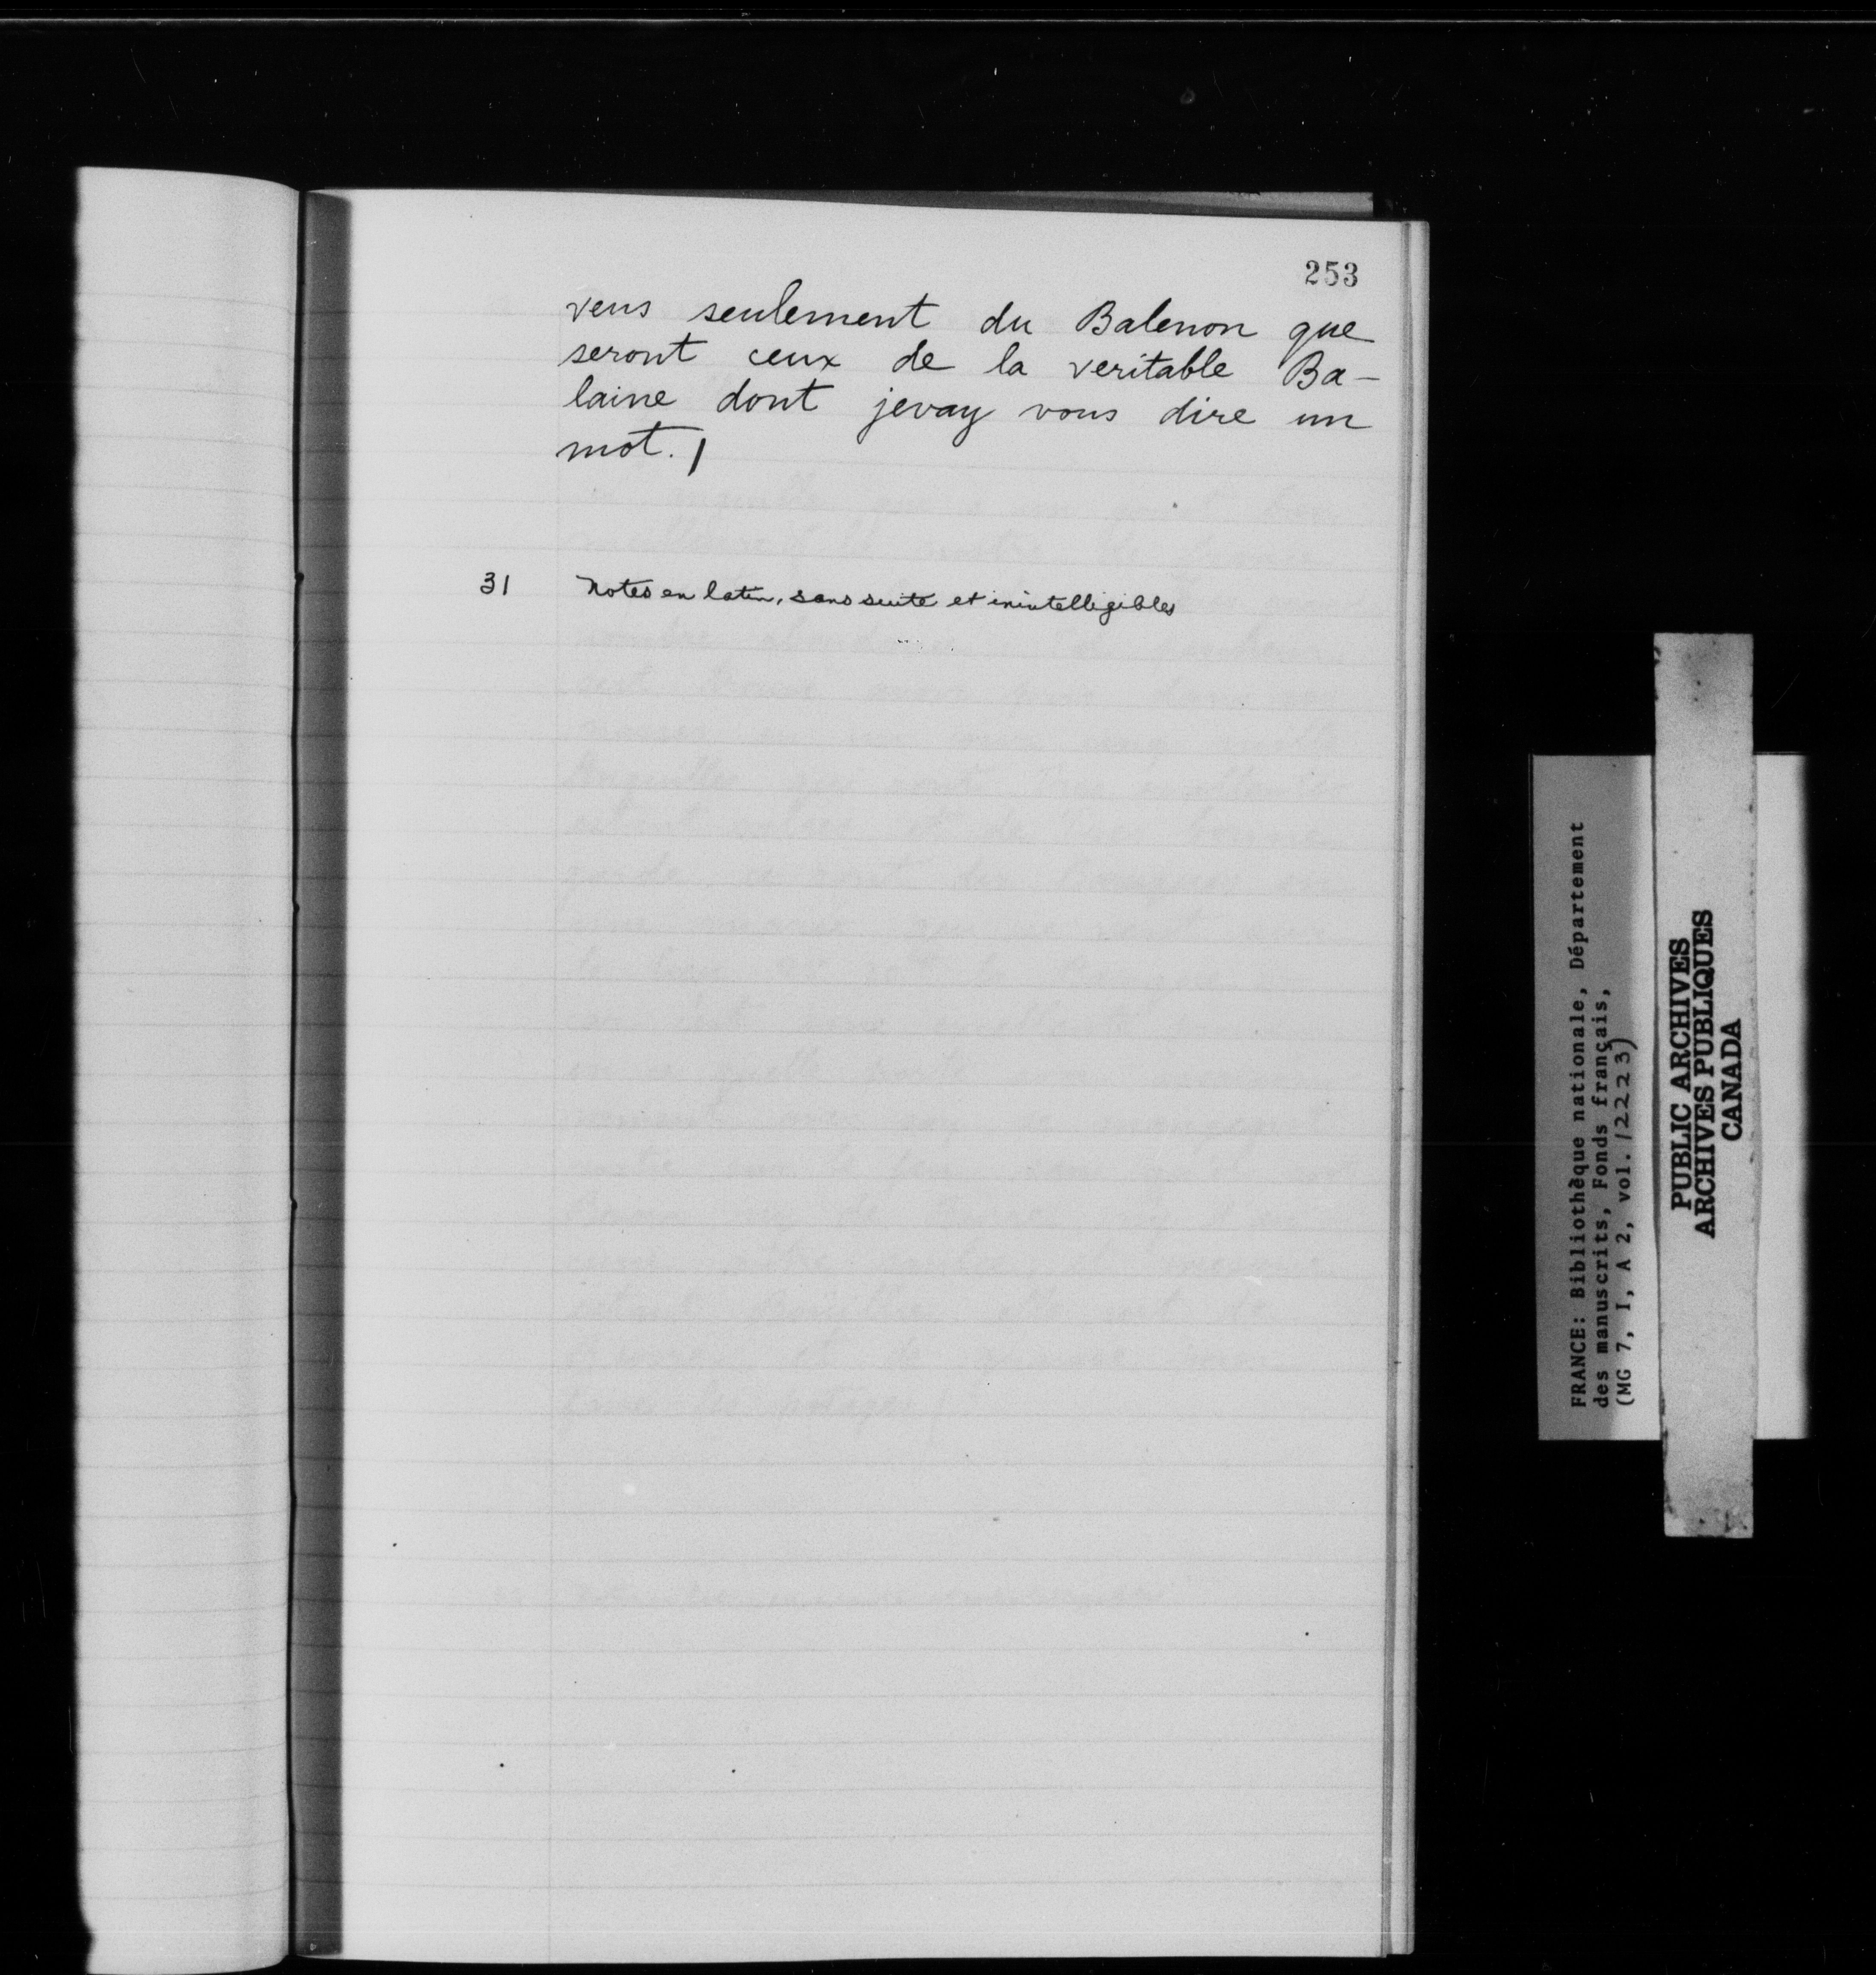 253
vens seulement du Balenon que
seront ceux de la veritable Ba-
laine dont jevay vous dire un
mot. /
31 Notes en latin, sans suite et inintelligibles
FRANCE: Bibliothèque nationale, Département
des manuscrits, Fonds français,
(MG 7, I, A 2, vol. 12223)
PUBLIC ARCHIVES
ARCHIVES PUBLIQUES
CANADA